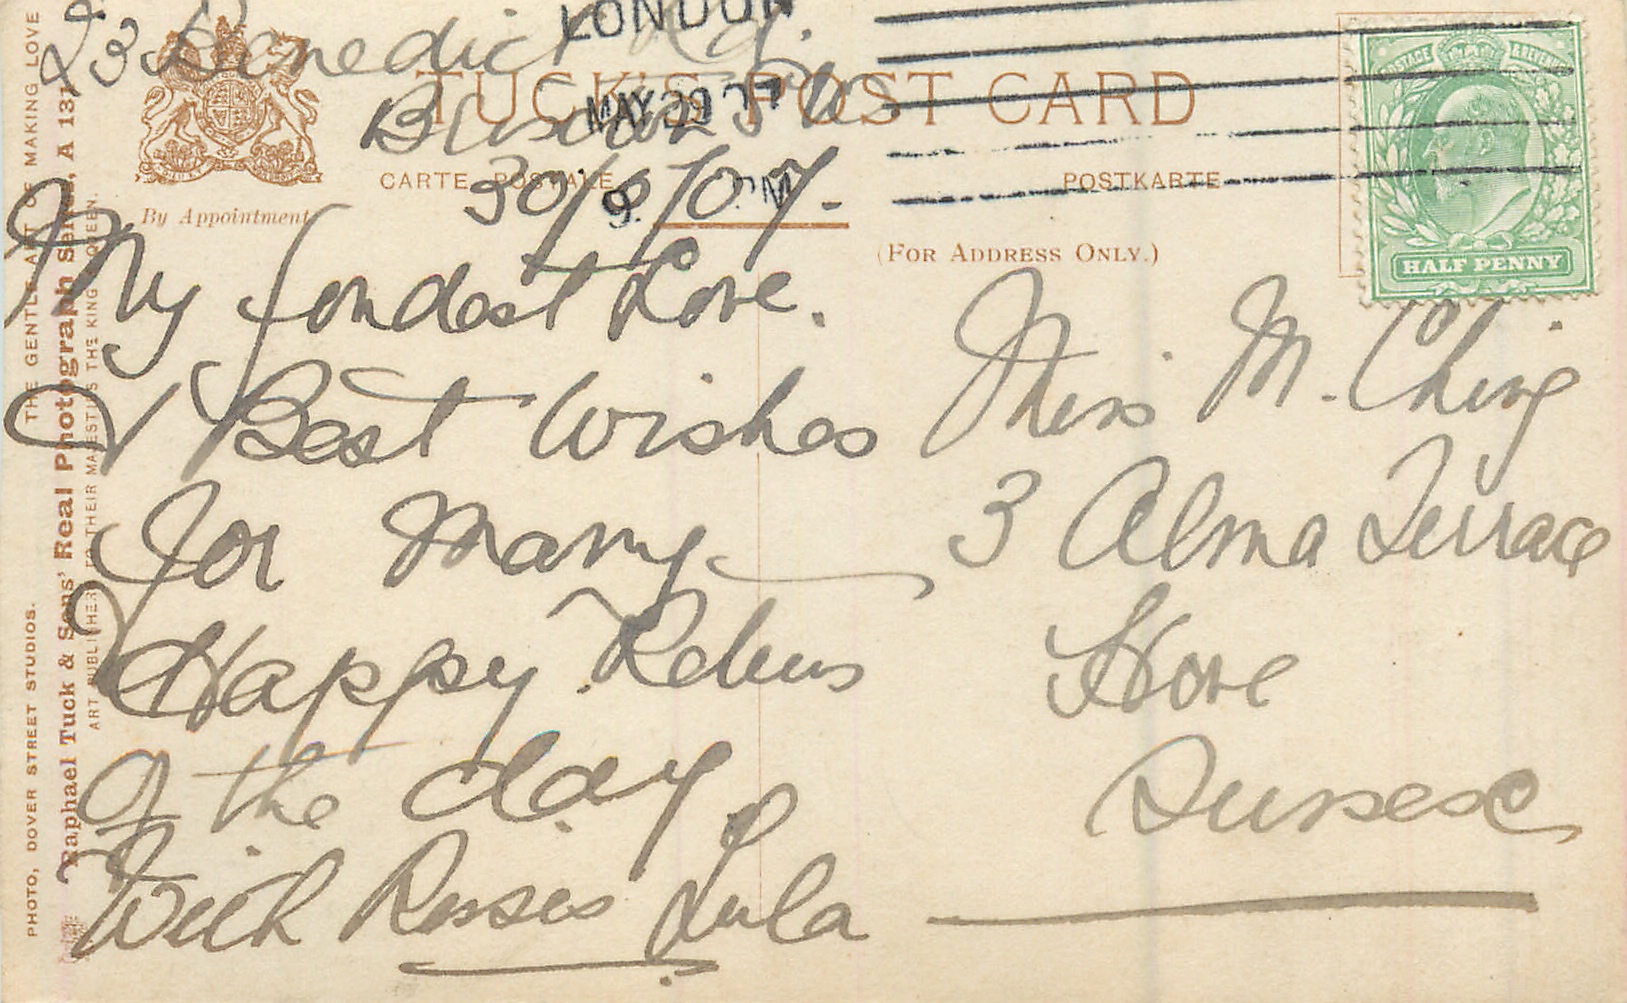 23 Benedict Rd.
Brixton SW
30/5/07.
My fondest Love.
& Best Wishes
for Many
Happy Retuns
of the day
With Kisses Lula
Miss M. Ching
3 Alma Terrace
Hove
Sussex
TUCK'S POST CARD
CARTE POSTALE
POSTKARTE
(FOR ADDRESS ONLY.)
By Appointment
LONDON
MAY 29 07
POSTAGE & REVENUE
HALF PENNY
THE GENTLE ART OF MAKING LOVE
PHOTO, DOVER STREET STUDIOS.
Raphael Tuck & Sons' Real Photograph Series, A 131
ART PUBLISHERS TO THEIR MAJESTIES THE KING & QUEEN.